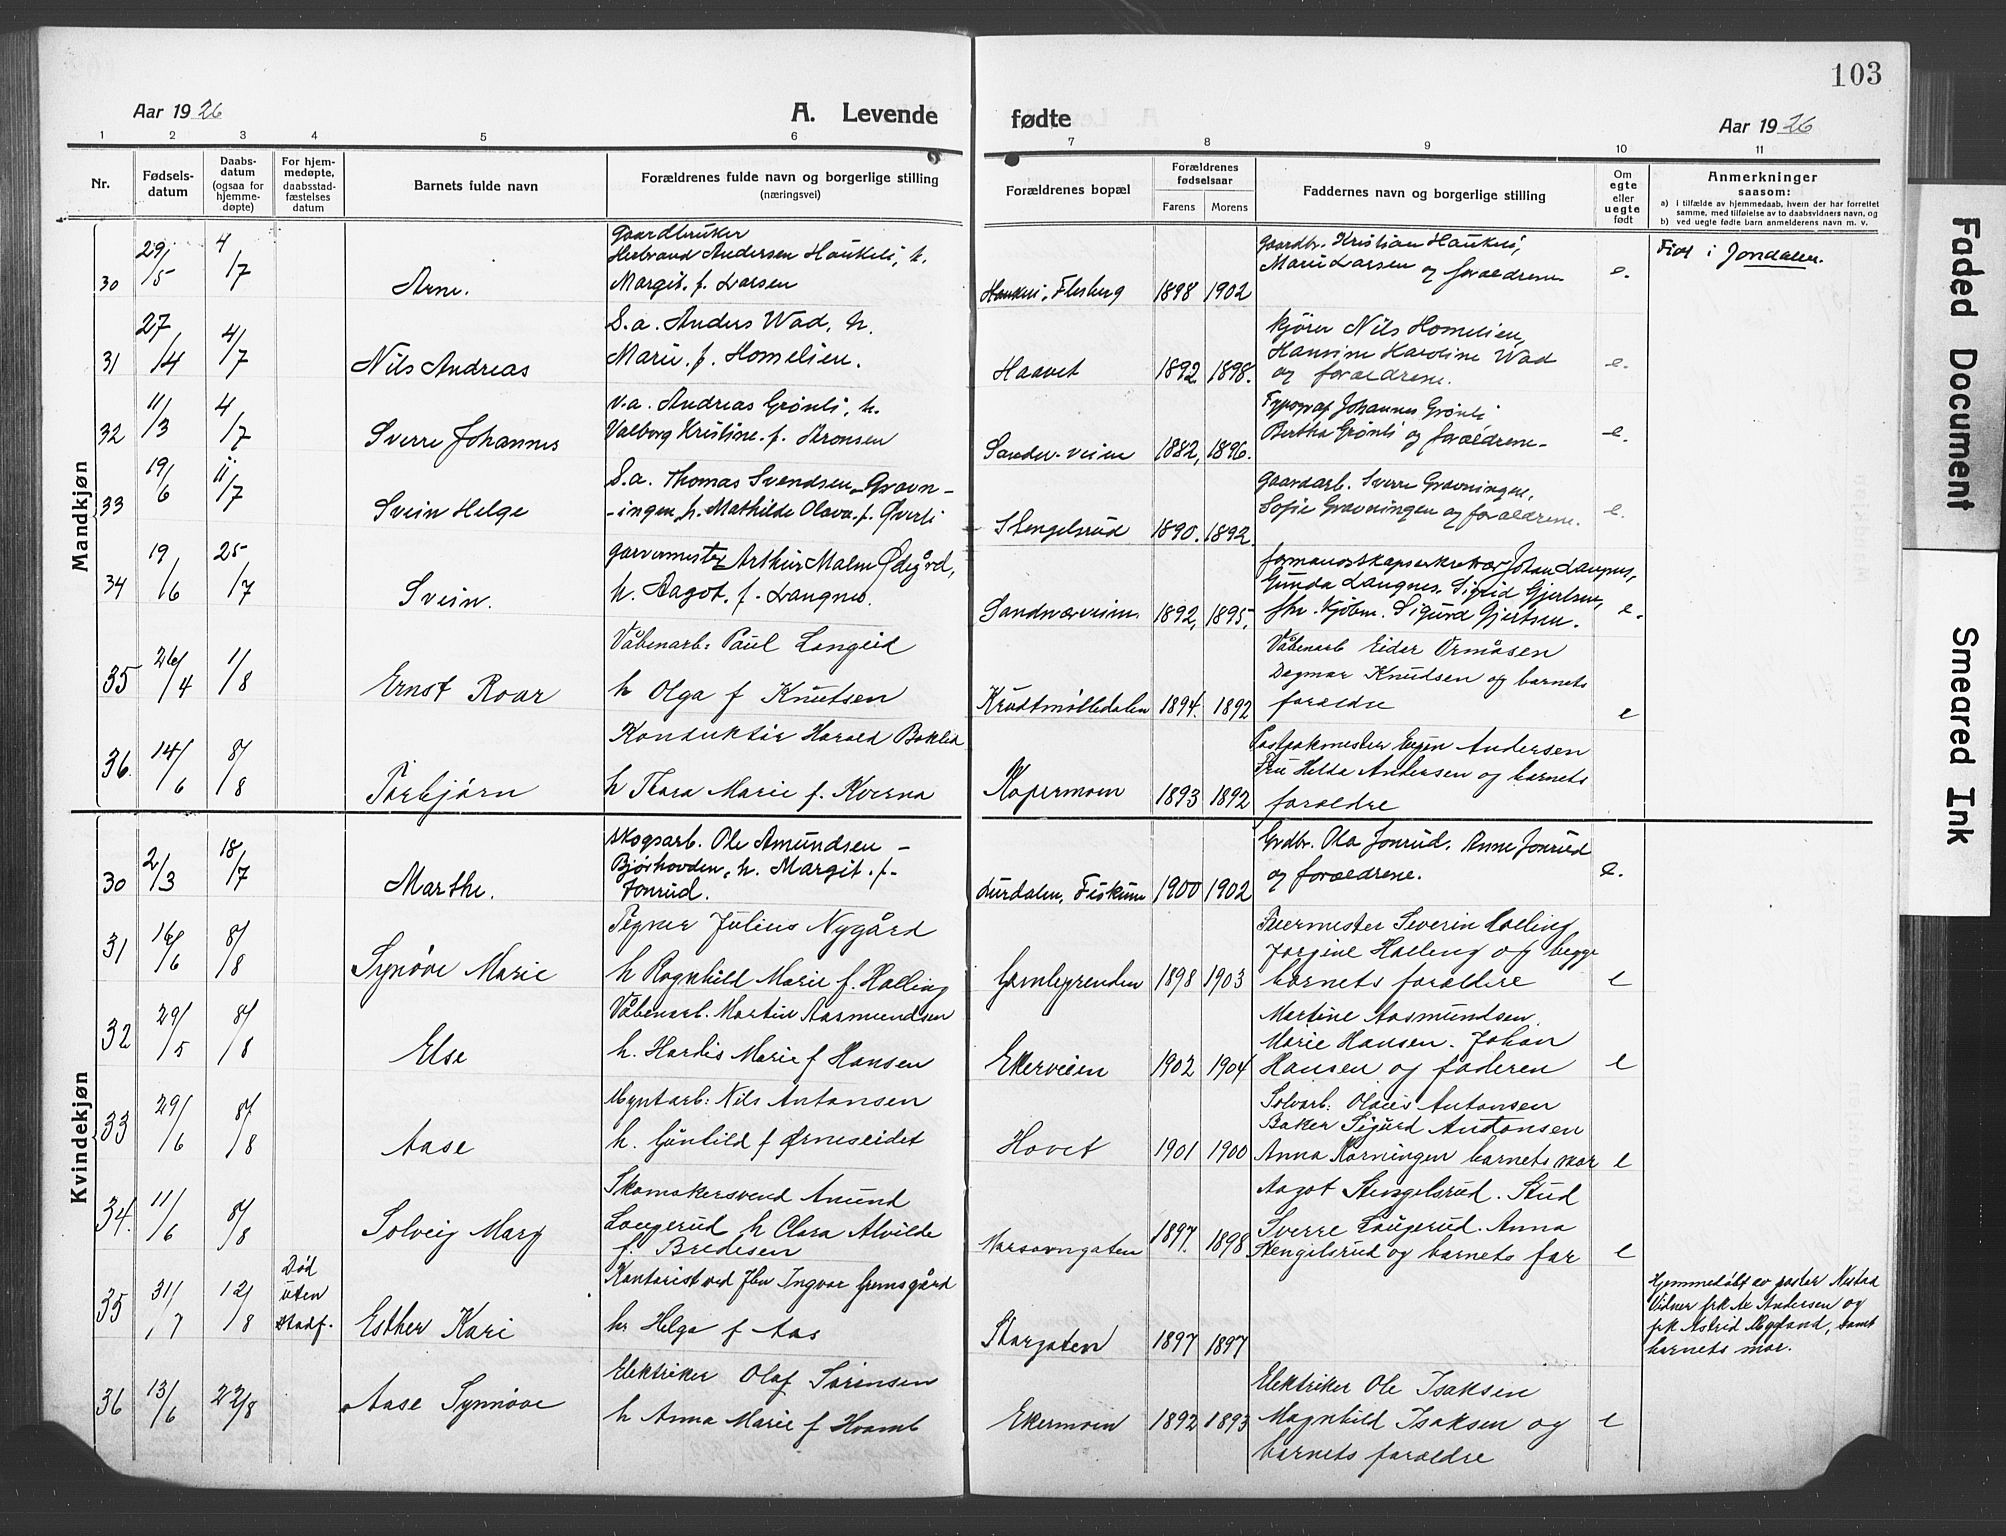 103
Aar 1926
A. Levende
fødte
Aar 1926
1 2 3 4 5 6 7 8 9 10 11
Nr.
Fødsels-
datum
Daabs-
datum
(ogsaa for
hjemme-
døpte)
For hjem-
medøpte,
daabsstad-
fæstelses
datum
Barnets fulde navn
Forældrenes fulde navn og borgerlige stilling
(næringsvei)
Forældrenes bopæl
Forældrenes
fødselsaar
Farens Morens
Faddernes navn og borgerlige stilling
Om
egte
eller
uegte
født
Anmerkninger
saasom:
a) i tilfælde av hjemmedaab, hvem der har forrettet
samme, med tilføielse av to daabsvidners navn, og
b) ved uegte fødte barn anmelderens navn m. v.
Mandkjøn
30 29/5 4/7 Arne.
Gaardbruker
Herbrand Andersen Haukeli, h.
Margit. f. Larsen
Haukeli, Flesberg 1898 1902
Gaardbr. Kristian Haukeli,
Marie Larsen og forældrene
e.
Fiol i Jondalen.
31 27/4 4/7 Nils Andreas
S.a. Anders Wad, h.
Marie. f. Homelien.
Haavet 1892 1898.
Kjører Nils Homelien,
Hansine Karoline Wad
og forældrene.
e.
32 11/3 4/7 Sverre Johannes
v.a. Andreas Grønli, h.
Valborg Kristine. f. Aronsen
Sander-veien 1882, 1896.
Typograf Johannes Grønli
Bertha Grønli og forældrene-
e.
33 19/6 11/7 Svein Helge
S.a. Thomas Svendsen Gravn-
-ingen, h. Mathilde Olava, f. Øverli
Stengelsrud 1890. 1892.
Gaardarb. Sverre Gravningen,
Sofie Gravningen og forældrene.
e.
34 19/6 25/7 Svein.
garvermester Arthur Malm Ødegård,
h. Aagot. f. Langnes.
Sandsværveien 1892, 1895,
formandskapsekretær Johan Langnes,
Gunda Langnes, Sigrid Gjertsen,
Hr. Kjøbm. Sigurd Gjertsen.
e.
35 26/4 1/8 Ernst Roar
Våbenarb: Paul Langlid
h Olga f Knutsen
Krudtmølledalen 1894. 1892
Våbenarb Eider Ormåsen
Dagmar Knudsen og barnets
foraldre
e
36. 14/6 8/8 Torbjørn
Konduktør Harald Boklid
h Thora Marie f. Kverna
Kopermoen 1893 1892
Postpakmester Eugen Andersen
Fru Helda Andersen og barnets
foraldre
Kvindekjøn
30 2/3 18/7 Marthe.
Skogsarb. Ole Amundsen -
Bjørhovden, h. Margit. f.
Jonrud.
Lurdalen, Fiskum 1900 1902
Grdbr. Ola Jonrud. Anne Jonrud
og forældrene.
e.
31 16/6 8/8 Synøve Marie
Tegner Julius Nygård
h Ragnhild Marie f. Halling
Gamlegrenden 1898 1903
Feiermester Severin Halling
Jorgine Halling og begge
barnets foraldre
e
32 29/5 8/8 Else
Våbenarb. Martin Aasmundsen
h. Hardis Marie f Hansen
Ekerveien 1902 1904
Martine Aasmundsen.
Marie Hansen. Johan
Hansen og faderen
e
33 29/6 8/8 Aase
Myntarb: Nils Antonsen
h. Gunhild f Ørneseidet
Hovet 1901 1900
Sølvarb: Olaus Antonsen
Baker Sigurd Antonsen
Anna Korningen barnets mor
e
34. 11/6 8/8 Solveig Mary
Skomakersvend Anund
Langerud h Clara Alvilde
f. Bredesen
1897. 1898
Aagot Stengelsrud. Stud
Sverre Laugerud. Anna
Stengelsrud og barnets far
e
35 31/7 12/8
Død
uten
stadf.
Esther Kari
Kontorist ved Jbn Ingvar Gremsgård
h Helga f Aas
Storgaten 1897 1897
Hjemmedøbt av pastor Nestad
Vidner frk Aa Andersen og
frk Astrid Myrland, samt
barnets mor.
36 13/6 22/8 Aase Synnøve
Elektriker Olaf Sørensen
h Anna Marie f Hvamb
Ekermoen 1892 1893
Elektriker Ole Isaksen
Magnhild Isaksen og
barnets foraldre
e
Faded Document
Smeared Ink